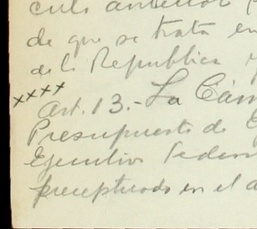 culo anterior
de que se trata en
de la Republica y
xxxx
Art. 13.- La Cám
Presupuesto de E
Ejecutivo Federa
preceptuado en el a